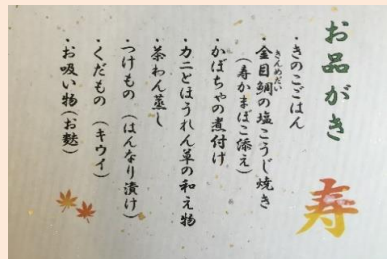 お品がき
寿
・きのこごはん
・金目鯛の塩こうじ焼き
きんめだい
(寿かまぼこ添え)
・かぼちゃの煮付け
・カニとほうれん草の和え物
・茶わん蒸し
・つけもの(はんなり漬け)
・くだもの(キウイ)
・お吸い物(お麩)